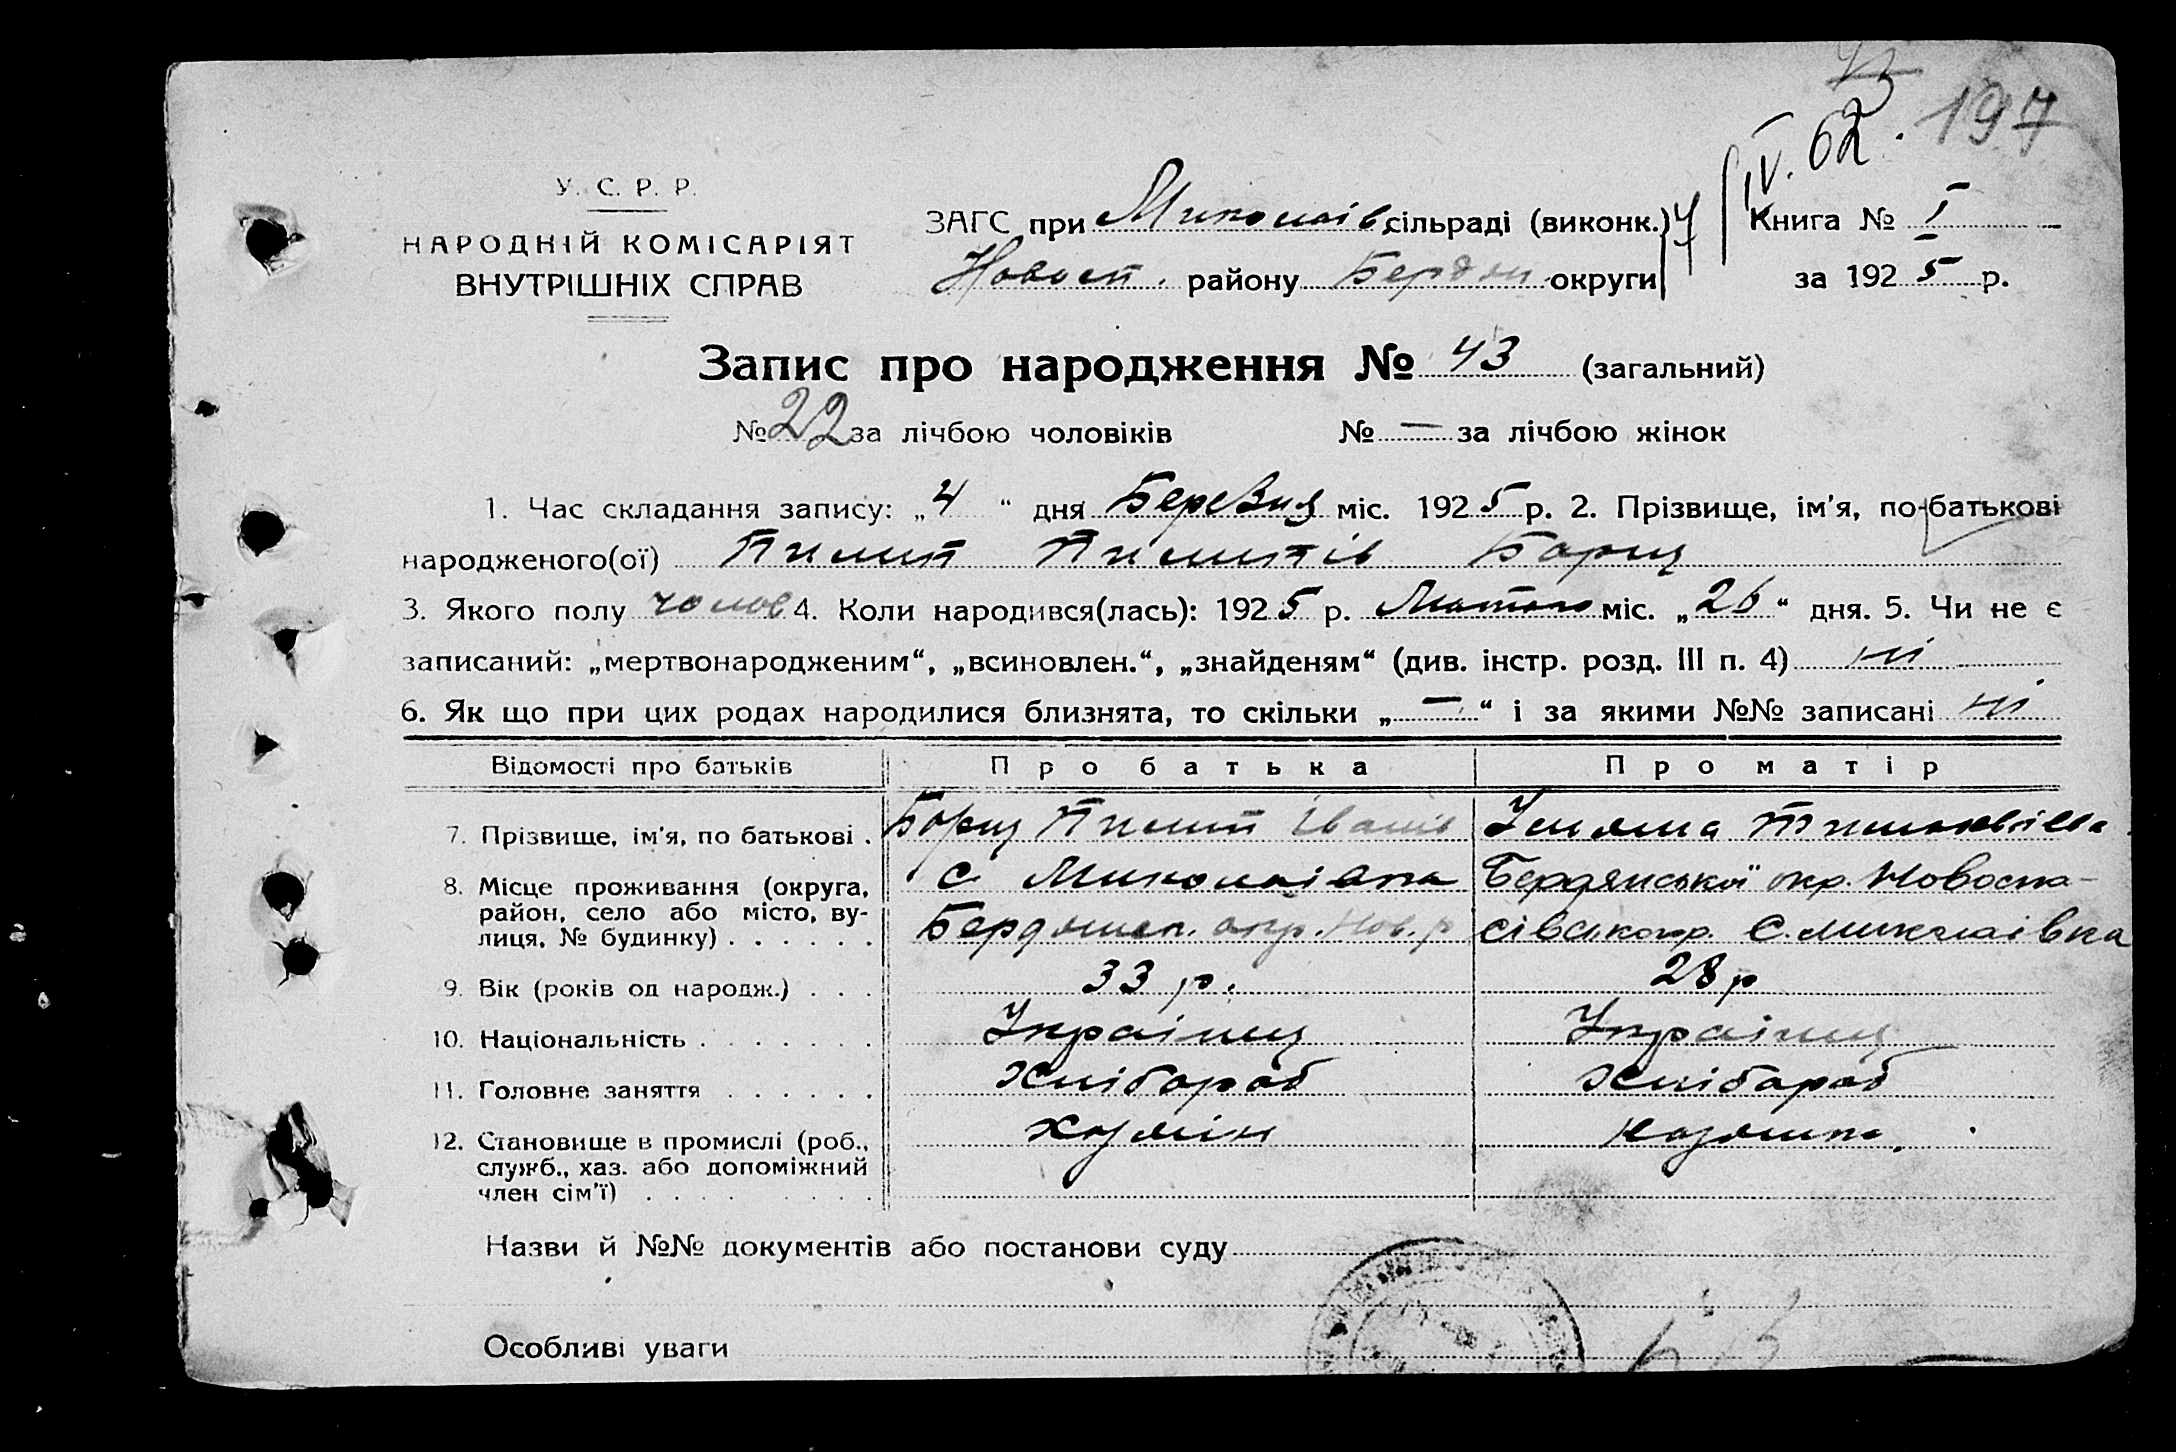 43
IV. 62. 197
У. С. Р. Р.
НАРОДНІЙ КОМІСАРІЯТ
ВНУТРІШНІХ СПРАВ
ЗАГС при Миколаїв сільраді (виконк.)
Новосп. району Бердян округи
Книга № I
за 1925 р.
Запис про народження № 43 (загальний)
№ 22 за лічбою чоловіків № — за лічбою жінок
1. Час складання запису: „4“ дня Березня міс. 1925 р. 2. Прізвище, ім'я, по-батькові
народженого(ої) Пилип Пилипів Борщ
3. Якого полу чолов 4. Коли народився(лась): 1925 р. Лютого міс. „26“ дня. 5. Чи не є
записаний: „мертвонародженим“, „всиновлен.“, „знайденям“ (див. інстр. розд. III п. 4) ні
6. Як що при цих родах народилися близнята, то скільки „—“ і за якими №№ записані ні
Відомості про батьків Про батька Про матір
7. Прізвище, ім'я, по батькові . Борщ Пилип Іванів Уляна
8. Місце проживання (округа, район, село або місто, вулиця, № будинку) . . . . . . с. Миколаївка Бердянськ. окр. Нов. р Бердянської окр. Новоспасівськ р. с. Миколаівка
9. Вік (років од народж.) . . . 33 р. 28 р
10. Національність . . . . . . . Украінец Украінец
11. Головне заняття . . . . . . Хлібороб Хлібороб
12. Становище в промислі (роб., служб., хаз. або допоміжний член сім'ї) . . . . . . . . . Хазяін Хазяика.
Назви й №№ документів або постанови суду
Особливі уваги